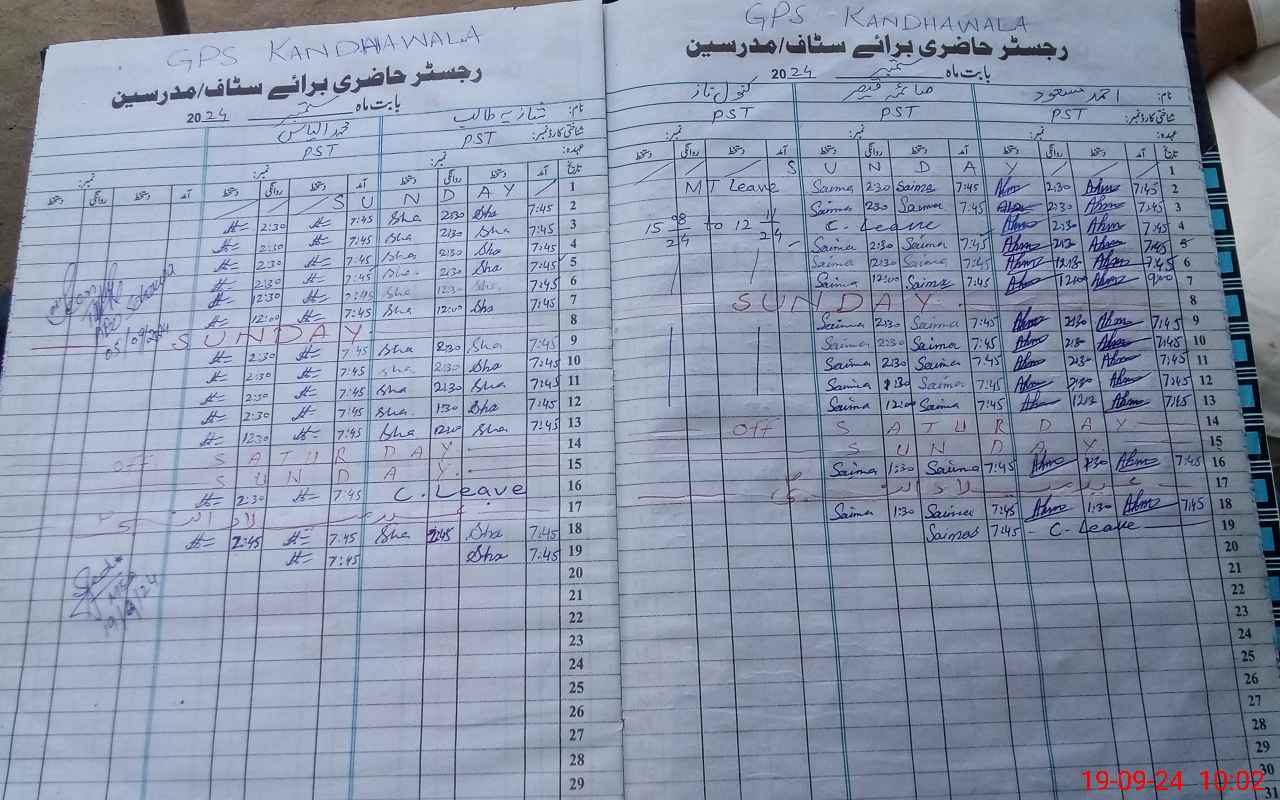 GPS KANDHAWALA
رجسٹر حاضری برائے سٹاف/مدرسین
بابت ماہ ستمبر 2024
نام: احمد مسعود صائمہ قیصر کنول ناز
شناختی کارڈ نمبر: PST PST PST
عہدہ: نمبر: نمبر: نمبر:
تاریخ آمد دستخط روانگی دستخط آمد دستخط روانگی دستخط آمد دستخط روانگی دستخط
1 SUNDAY
2 7:45 Ahm 2:30 Ahm 7:45 Saima 2:30 Saima MT Leave
3 7:45 Ahm 2:30 Ahm 7:45 Saima 2:30 Saima
4 7:45 Ahm 2:30 Ahm C. Leave 15 08/24 to 12 11/24
5 7:45 Ahm Ahm 7:45 Saima 2:30 Saima
6 7:45 Ahm Ahm 7:45 Saima 12:30 Saima
7 9:00 Ahm 12:00 Ahm 7:45 Saima 12:00 Saima
8 SUNDAY
9 7:45 Ahm 2:30 Ahm 7:45 Saima 2:30 Saima
10 7:45 Ahm 2:30 Ahm 7:45 Saima 2:30 Saima
11 7:45 Ahm 2:30 Ahm 7:45 Saima 2:30 Saima
12 7:45 Ahm Ahm 7:45 Saima 1:30 Saima
13 7:45 Ahm Ahm 7:45 Saima 12:00 Saima
14 SATURDAY off
15 SUNDAY
16 7:45 Ahm 1:30 Ahm 7:45 Saima 1:30 Saima
17
18 7:45 Ahm 1:30 Ahm 7:45 Saima 1:30 Saima
19 C-Leave 7:45 Saima
20
21
22
23
24
25
26
27
28
29
30
31
GPS KANDHAWALA
رجسٹر حاضری برائے سٹاف/مدرسین
بابت ماہ ستمبر 2024
نام: شازیہ طالب محمد الیاس
شناختی کارڈ نمبر: PST PST
عہدہ: نمبر: نمبر: نمبر:
تاریخ آمد دستخط روانگی دستخط آمد دستخط روانگی دستخط آمد دستخط روانگی دستخط
1 SUNDAY
2 7:45 Sha 2:30 Sha 7:45 2:30
3 7:45 Sha 2:30 Sha 7:45 2:30
4 7:45 Sha 2:30 Sha 7:45 2:30
5 7:45 Sha 2:30 Sha 7:45 2:30
6 7:45 Sha 12:30 Sha 7:45 12:30
7 7:45 Sha 12:00 Sha 7:45 12:00
05/09/24
8 SUNDAY
9 7:45 Sha 2:30 Sha 7:45 2:30
10 7:45 Sha 2:30 Sha 7:45 2:30
11 7:45 Sha 2:30 Sha 7:45 2:30
12 7:45 Sha 1:30 Sha 7:45 2:30
13 7:45 Sha 12:00 Sha 7:45 12:30
14 SATURDAY off
15 SUNDAY
16 C. Leave 7:45 2:30
17
18 7:45 Sha Sha 7:45 2:45
19 7:45 Sha 7:45
19/9/24
20
21
22
23
24
25
26
27
28
29
19-09-24 10:02